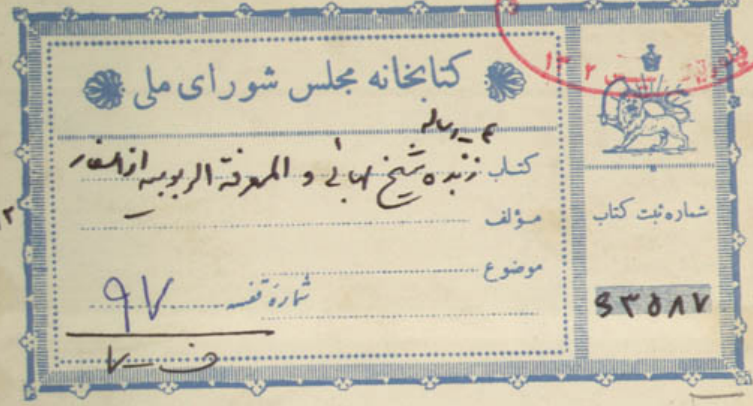 کتابخانه مجلس شورای ملی
رساله
کتاب زبده شیخ بهائی و المعرفة الربوبیه از اسفار
مؤلف
موضوع
شماره قفسه
۹۷
شماره ثبت کتاب
۶۳۵۸۷